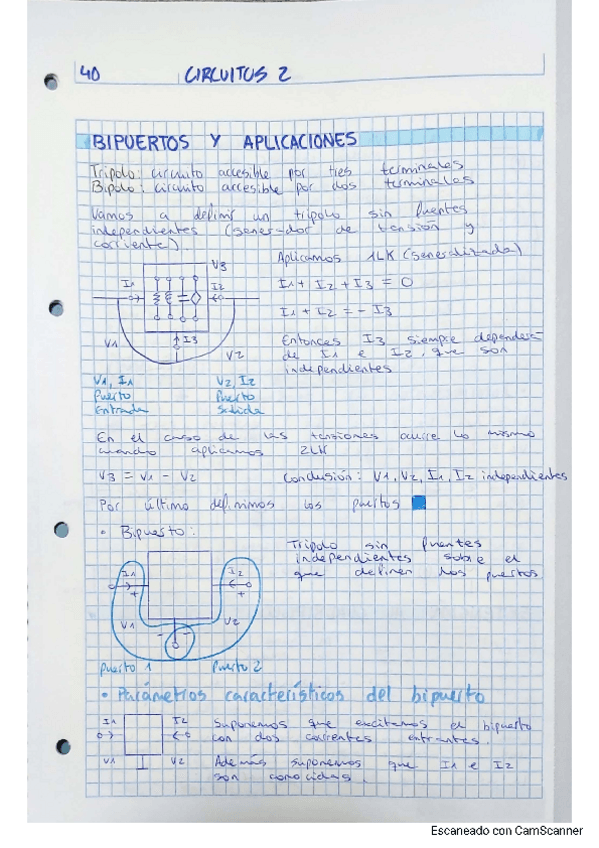 40 CIRCUITOS 2
BIPUERTOS Y APLICACIONES
Tripolo: circuito accesible por tres terminales
Bipolo: circuito accesible por dos terminales
Vamos a definir un tripolo sin fuentes
independientes (generador de tensión y
corriente).
Aplicamos 1LK (generalizada)
V3
I1
I2
I1 + I2 + I3 = 0
I1 + I2 = - I3
I3
V1
V2
Entonces I3 siempre dependerá
de I1 e I2, que son
independientes
V1, I1
Puerto
Entrada
V2, I2
Puerto
Salida
En el caso de las tensiones ocurre lo mismo
cuando aplicamos 2LK
V3 = V1 - V2
Conclusión: V1, V2, I1, I2 independientes
Por último definimos los puertos
• Bipuerto:
Tripolo sin fuentes
independientes sobre el
que definen los puertos
I1
I2
+
+
V1
V2
-
-
Puerto 1
Puerto 2
• Parámetros característicos del bipuerto
I1
I2
V1
V2
Suponemos que excitamos el bipuerto
con dos corrientes entrantes.
Además suponemos que I1 e I2
son conocidas.
Escaneado con CamScanner